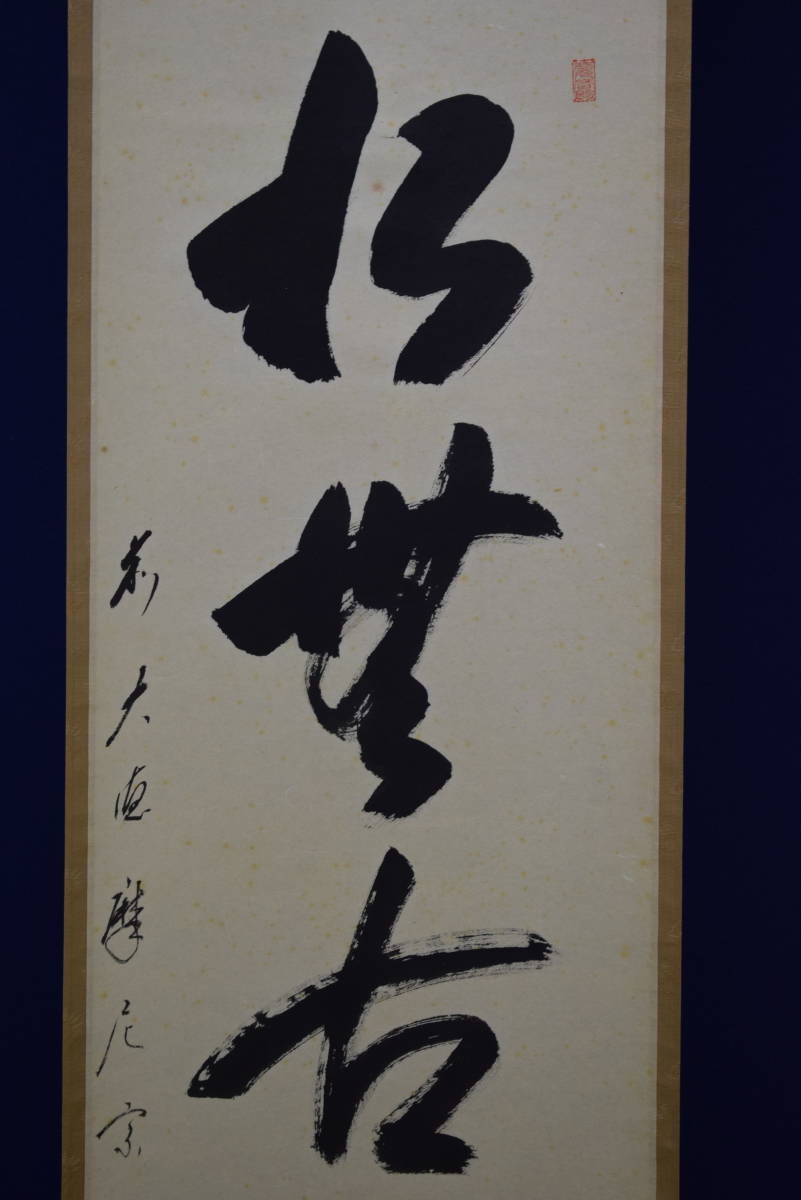 松無古
前大徳摩尼宗